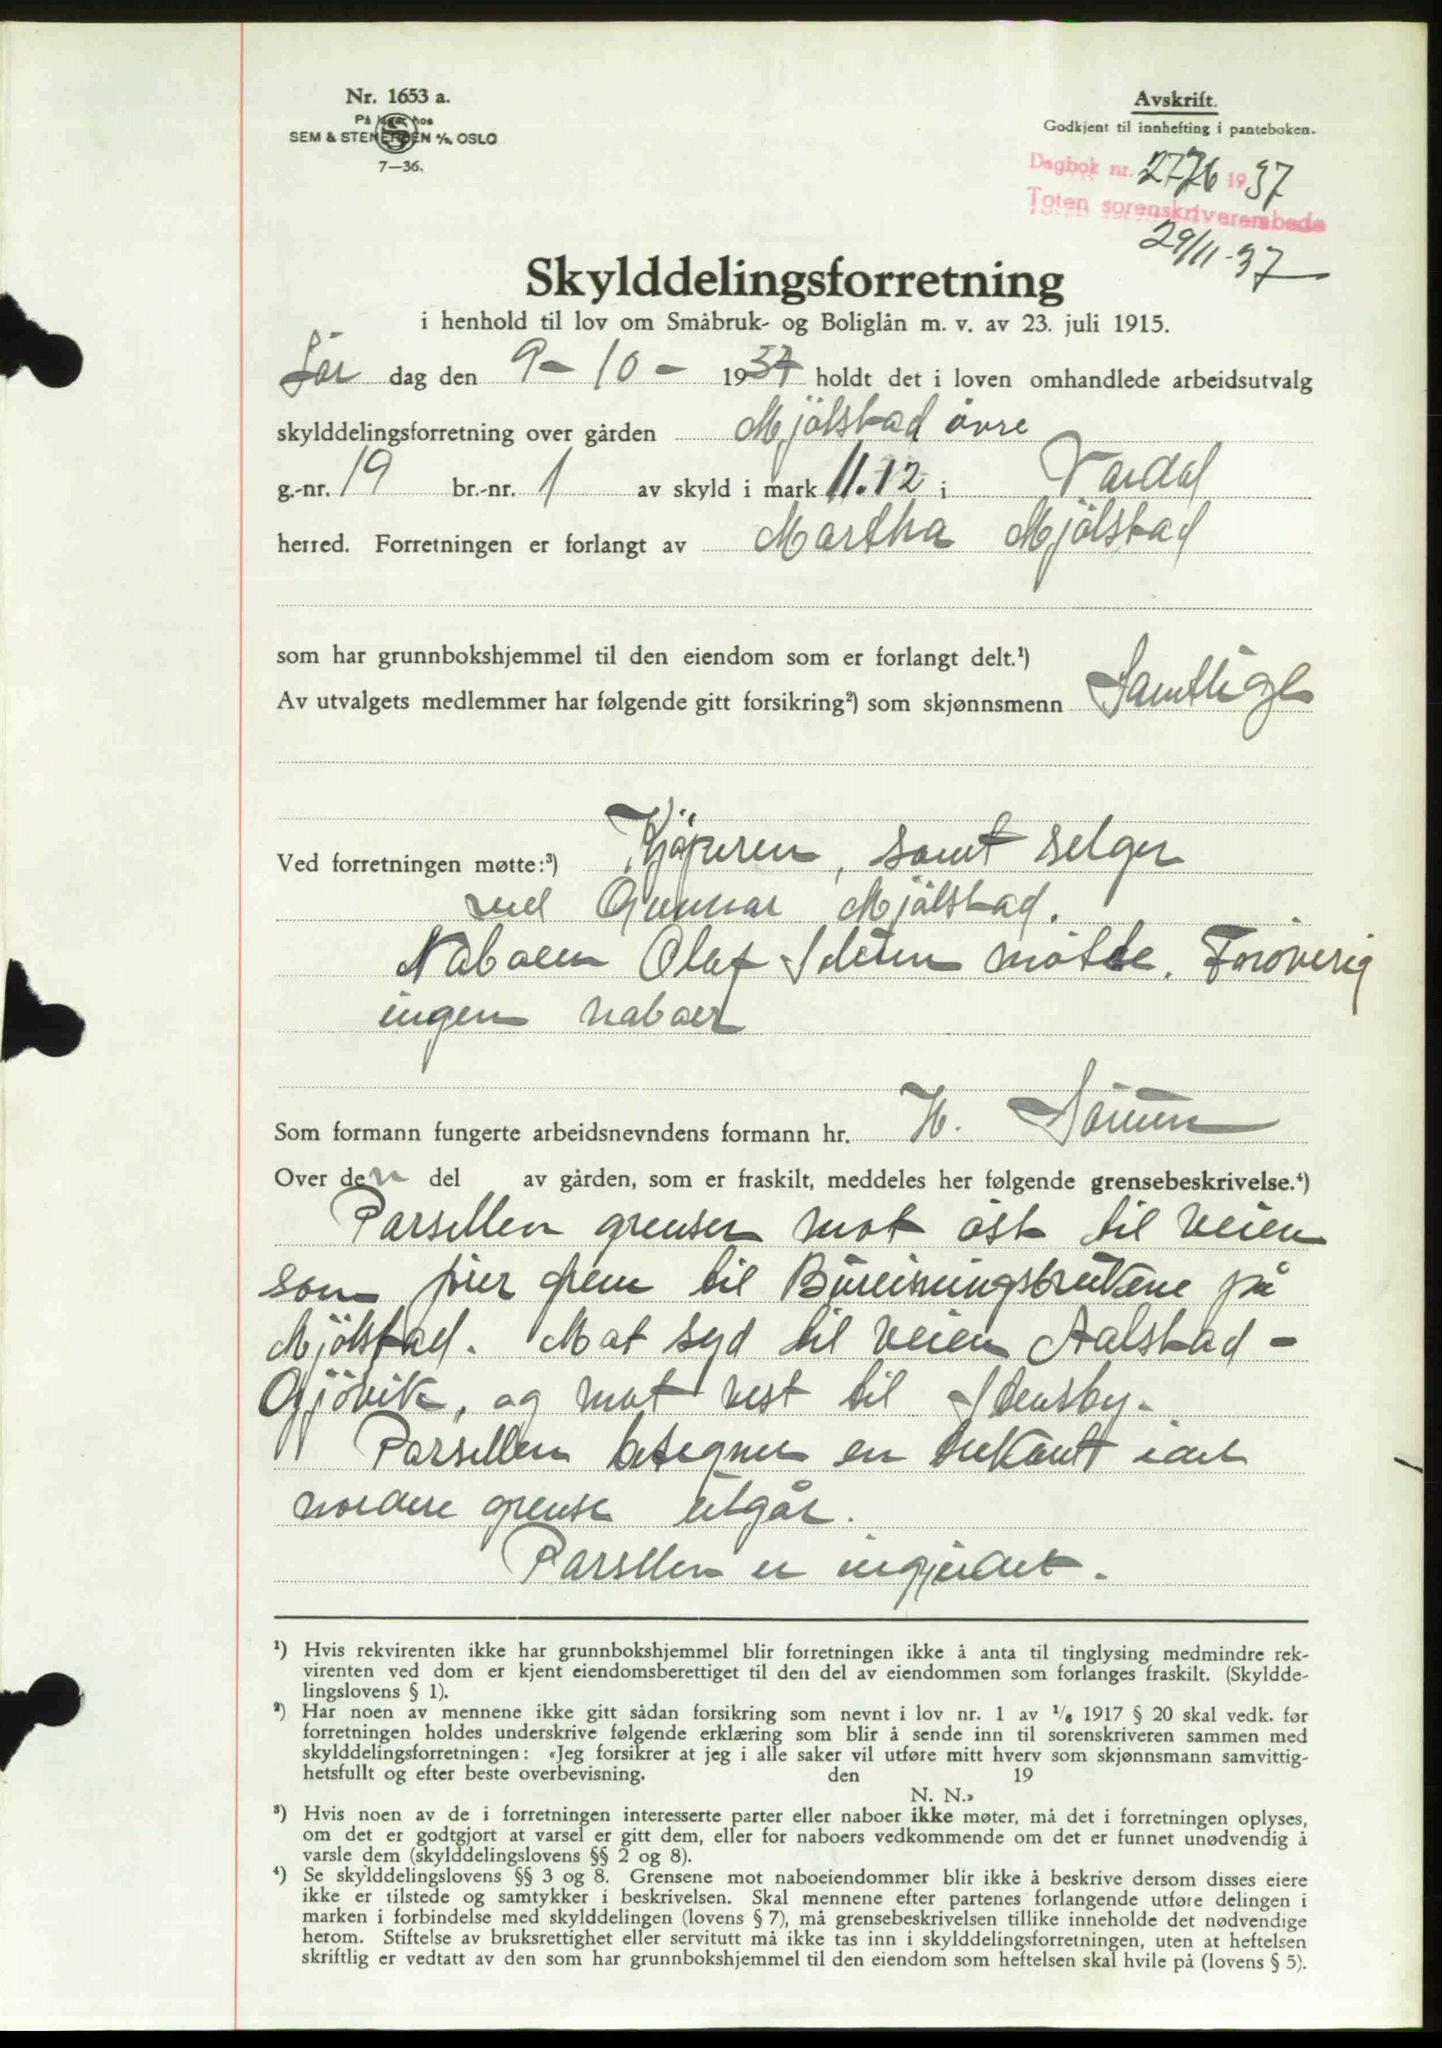 Nr. 1653 a.
På lager hos
SEM & STENERSEN A/S, OSLO
7—36.
Avskrift.
Godkjent til innhefting i panteboken.
Dagbok nr. 2776 1937
Toten sorenskriverembede
29/11-37
Skylddelingsforretning
i henhold til lov om Småbruk- og Boliglån m. v. av 23. juli 1915.
Lör dag den 9-10- 1937 holdt det i loven omhandlede arbeidsutvalg
skylddelingsforretning over gården Mjölstad övre
g.-nr. 19 br.-nr. 1 av skyld i mark 11.12 i Vardal
herred. Forretningen er forlangt av Martha Mjölstad
som har grunnbokshjemmel til den eiendom som er forlangt delt.¹)
Av utvalgets medlemmer har følgende gitt forsikring²) som skjønnsmenn Samtlige
Ved forretningen møtte:³) Kjöperen, samt selger
ved Gunnar Mjölstad.
Naboen Olaf mötte. Foröverig
ingen naboer
Som formann fungerte arbeidsnevndens formann hr. H.
Over den del av gården, som er fraskilt, meddeles her følgende grensebeskrivelse.⁴)
Parsellen grenser mot öst til veien
som förer frem til Bureisningsbrukene på
Mjölstad. Mot syd til veien Aalstad -
Gjövik, og mot vest til Stensby.
Parsellen betegner en trekant idet
nordre grense utgår.
Parsellen er ingjerdet.
¹) Hvis rekvirenten ikke har grunnbokshjemmel blir forretningen ikke å anta til tinglysing medmindre rek-
virenten ved dom er kjent eiendomsberettiget til den del av eiendommen som forlanges fraskilt. (Skyldde-
lingslovens § 1).
²) Har noen av mennene ikke gitt sådan forsikring som nevnt i lov nr. 1 av ¹/₆ 1917 § 20 skal vedk. før
forretningen holdes underskrive følgende erklæring som blir å sende inn til sorenskriveren sammen med
skylddelingsforretningen: «Jeg forsikrer at jeg i alle saker vil utføre mitt hverv som skjønnsmann samvittig-
hetsfullt og efter beste overbevisning. den 19
N. N.»
³) Hvis noen av de i forretningen interesserte parter eller naboer ikke møter, må det i forretningen oplyses,
om det er godtgjort at varsel er gitt dem, eller for naboers vedkommende om det er funnet unødvendig å
varsle dem (skylddelingslovens §§ 2 og 8).
⁴) Se skylddelingslovens §§ 3 og 8. Grensene mot naboeiendommer blir ikke å beskrive dersom disses eiere
ikke er tilstede og samtykker i beskrivelsen. Skal mennene efter partenes forlangende utføre delingen i
marken i forbindelse med skylddelingen (lovens § 7), må grensebeskrivelsen tillike inneholde det nødvendige
herom. Stiftelse av bruksrettighet eller servitutt må ikke tas inn i skylddelingsforretningen, uten at heftelsen
skriftlig er vedtatt av den som har grunnbokshjemmel til den eiendom som heftelsen skal hvile på (lovens § 5).